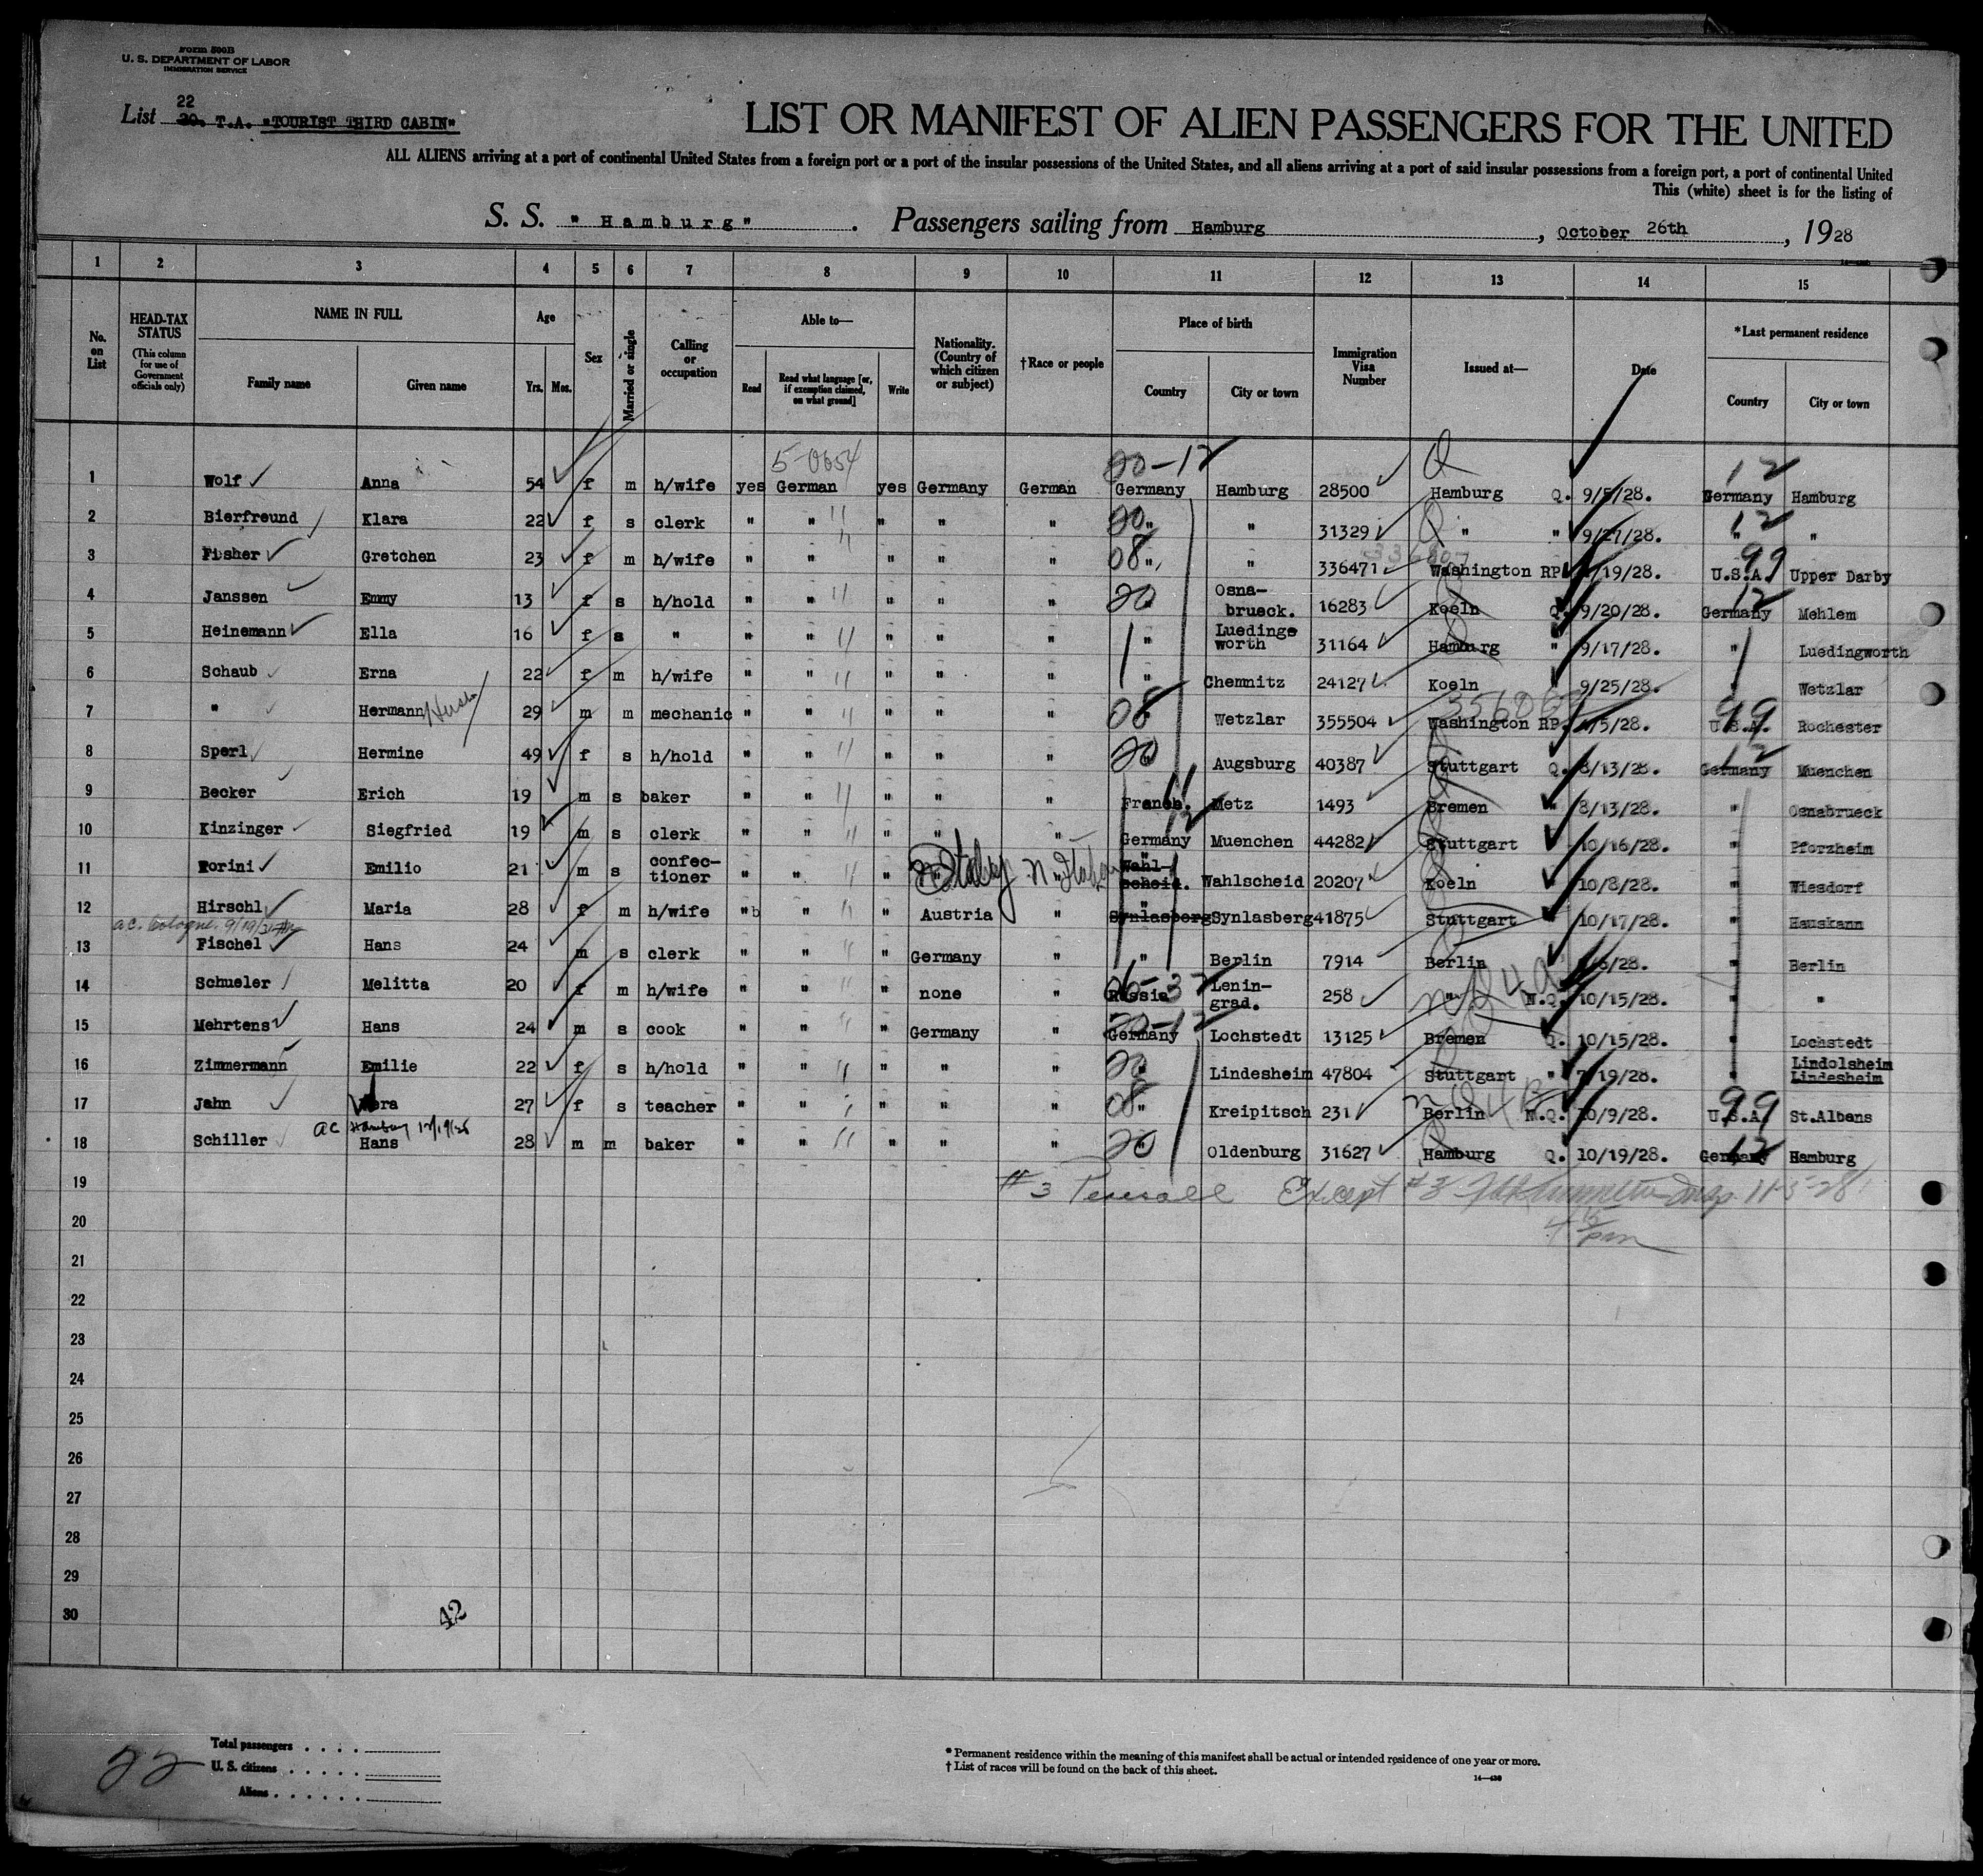 Form 500B
U. S. DEPARTMENT OF LABOR
IMMIGRATION SERVICE
List 22 30. T.A. "TOURIST THIRD CABIN"
LIST OR MANIFEST OF ALIEN PASSENGERS FOR THE UNITED
ALL ALIENS arriving at a port of continental United States from a foreign port or a port of the insular possessions of the United States, and all aliens arriving at a port of said insular possessions from a foreign port, a port of continental United
This (white) sheet is for the listing of
S. S. "Hamburg". Passengers sailing from Hamburg, October 26th, 1928
1 2 3 4 5 6 7 8 9 10 11 12 13 14 15
No. on List
HEAD-TAX STATUS (This column for use of Government officials only)
NAME IN FULL
Family name Given name
Age
Yrs. Mos.
Sex
Married or single
Calling or occupation
Able to—
Read Read what language [or, if exemption claimed, on what ground] Write
Nationality. (Country of which citizen or subject)
†Race or people
Place of birth
Country City or town
Immigration Visa Number
Issued at—
Date
*Last permanent residence
Country City or town
5-0654 20-12 Q 12
1 Wolf Anna 54 f m h/wife yes German yes Germany German Germany Hamburg 28500 Hamburg Q. 9/5/28. Germany Hamburg
2 Bierfreund Klara 22 f s clerk " " " " " 20 " " 31329 " " 9/27/28. 12 " "
3 Fisher Gretchen 23 f m h/wife " " " " " 08 " " 336471 Washington RP /19/28. 99 U.S.A. Upper Darby
4 Janssen Emmy 13 f s h/hold " " " " " 20 " Osna-brueck. 16283 Koeln Q. 9/20/28. 12 Germany Mehlem
5 Heinemann Ella 16 f s " " " " " " " Luedingsworth 31164 Hamburg " 9/17/28. " Luedingworth
6 Schaub Erna 22 f m h/wife " " " " " " Chemnitz 24127 Koeln " 9/25/28. " Wetzlar
7 " Hermann 29 m m mechanic " " " " " 08 " Wetzlar 355504 Washington RP. /5/28. 99 U.S.A. Rochester
8 Sperl Hermine 49 f s h/hold " " " " " 20 " Augsburg 40387 Stuttgart Q. 8/13/28. 12 Germany Muenchen
9 Becker Erich 19 m s baker " " " " " France. 11 Metz 1493 Bremen " 8/13/28. " Osnabrueck
10 Kinzinger Siegfried 19 m s clerk " " " " " Germany 12 Muenchen 44282 Stuttgart " 10/16/28. " Pforzheim
11 Porini Emilio 21 m s confec-tioner " " " " Italy " " Wahl-scheid. Wahlscheid 20207 Koeln 10/8/28. " Wiesdorf
12 Hirschl Maria 28 f m h/wife " " " Austria " " Synlasberg Synlasberg 41875 Stuttgart 10/17/28. " Hauskann
a.c. Cologne. 9/19/31
13 Fischel Hans 24 m s clerk " " " Germany " " Berlin 7914 Berlin /6/28. " Berlin
14 Schueler Melitta 20 f m h/wife " " " none " Russia Lenin-grad. 258 " N.Q. 10/15/28. " "
15 Mehrtens Hans 24 m s cook " " " Germany " 20-12 Germany Lochstedt 13125 Bremen Q. 10/15/28. " Lochstedt
16 Zimmermann Emilie 22 f s h/hold " " " " " 20 " Lindesheim 47804 Stuttgart " 7/19/28. " Lindolsheim Lindesheim
17 Jahn Vera 27 f s teacher " " " " " 08 " Kreipitsch 231 Berlin N.Q. 10/9/28. 99 U.S.A. St.Albans
ac Hamburg 12/19/28
18 Schiller Hans 28 m m baker " " " " " 20 " Oldenburg 31627 Hamburg Q. 10/19/28. 12 Germany Hamburg
19 #3 Except #3 Insp. 11-5-28
20 4 15 pm
21
22
23
24
25
26
27
28
29
30
42
22
Total passengers . . . .
U. S. citizens . . . . .
Aliens . . . . . .
* Permanent residence within the meaning of this manifest shall be actual or intended residence of one year or more.
† List of races will be found on the back of this sheet.
14—430